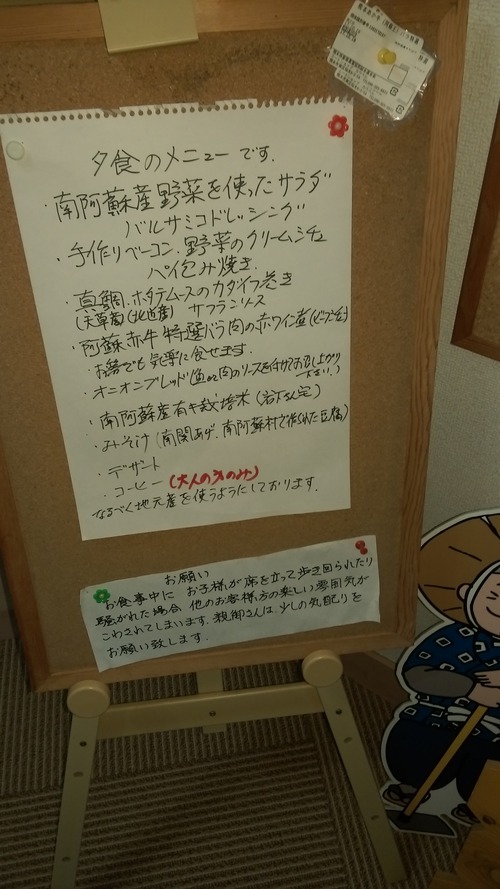 夕食のメニューです.
・南阿蘇産野菜を使ったサラダ
バルサミコドレッシング
・手作りベーコン.野菜のクリームシチュ
パイ包み焼き.
・真鯛.ホタテムースのカダイフ巻き
(天草産)(北海道産) サフランソース
・阿蘇赤牛 特選バラ肉の赤ワイン煮(ビーフシチュー)
・お箸でも気楽に食せます.
・オニオンブレッド(魚or肉のソースを付けてお召し上がり
下さい.)
・南阿蘇産有キ栽培米
・みそ汁(南関あげ.南阿蘇村で作られた豆腐)
・デザート
・コーヒー(大人の方のみ)
なるべく地元産を使うようにしております.
お願い
お食事中に お子様が席を立って歩き回られたり
騒がれた場合 他のお客様方の楽しい雰囲気が
こわされてしまいます.親御さんは.少しの気配りを
お願い致します.